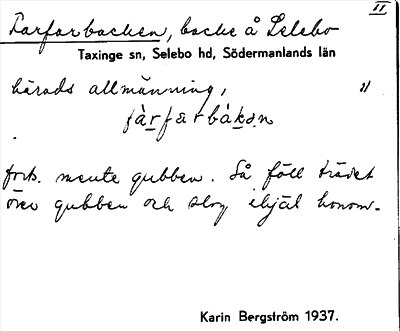 II
Farfarbacken, backe å Selebo
Taxinge sn, Selebo hd, Södermanlands län
härads allmänning, 11
fàrfarbàkən
forts. mente gubben. Så föll trädet
över gubben och slog ihjäl honom.
Karin Bergström 1937.